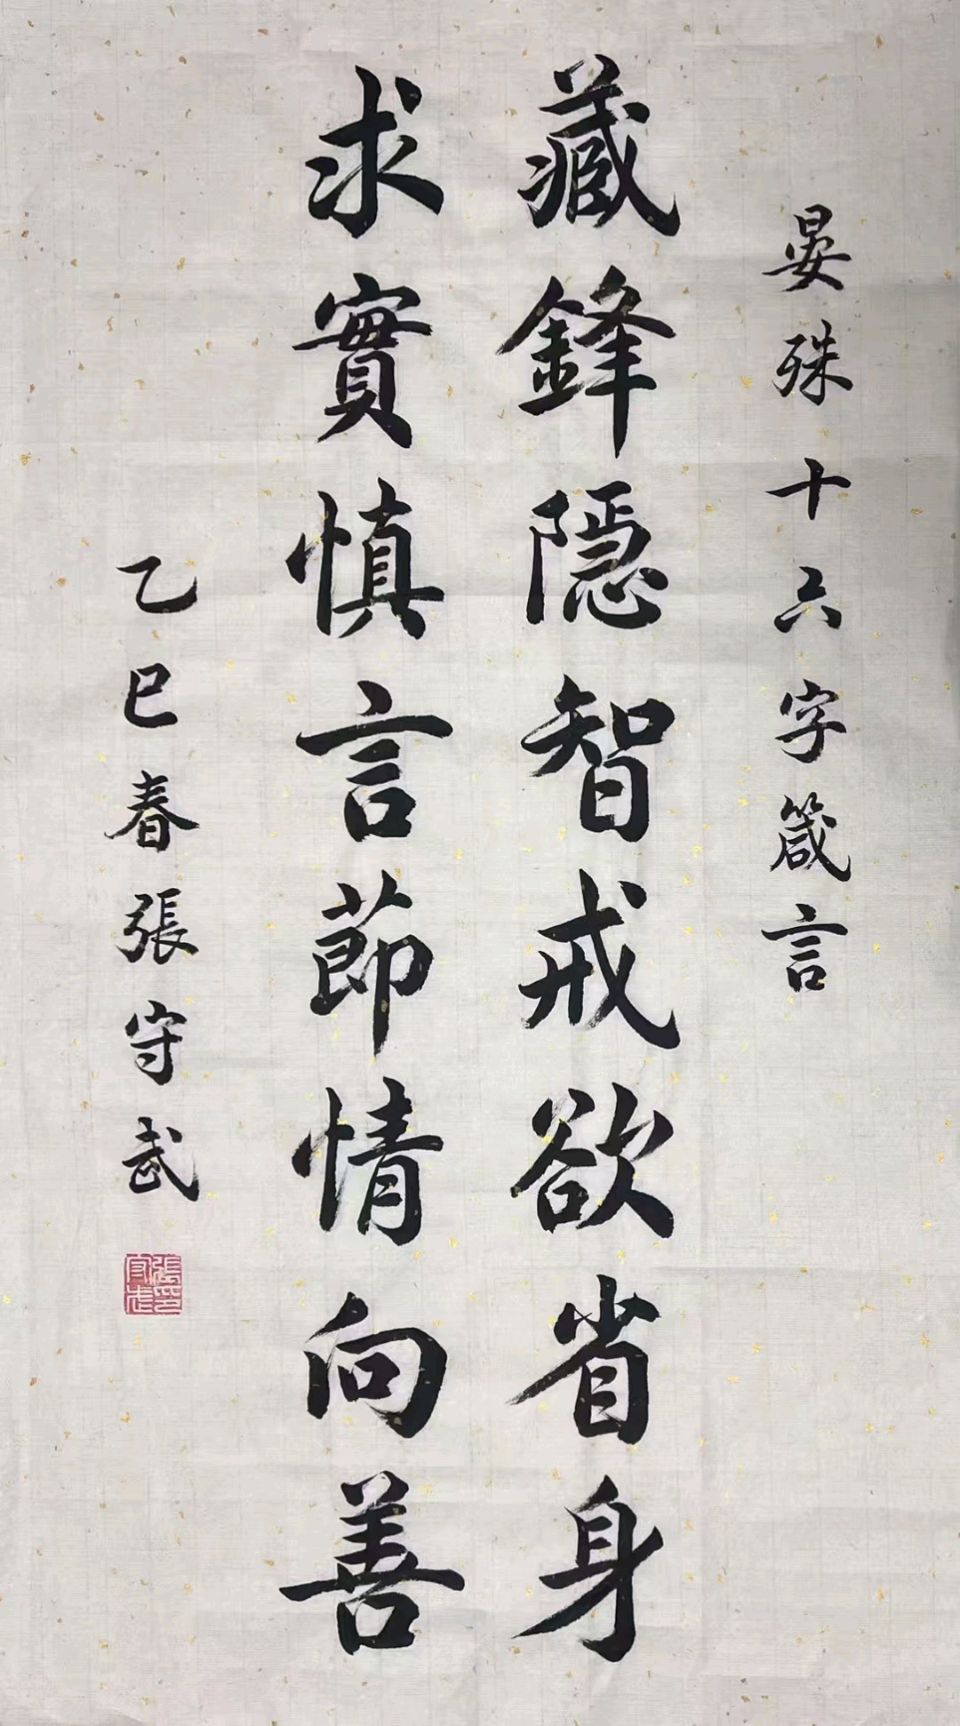 晏殊十六字箴言
藏鋒隱智戒欲省身
求實慎言節情向善
乙巳春張守武
張印守武